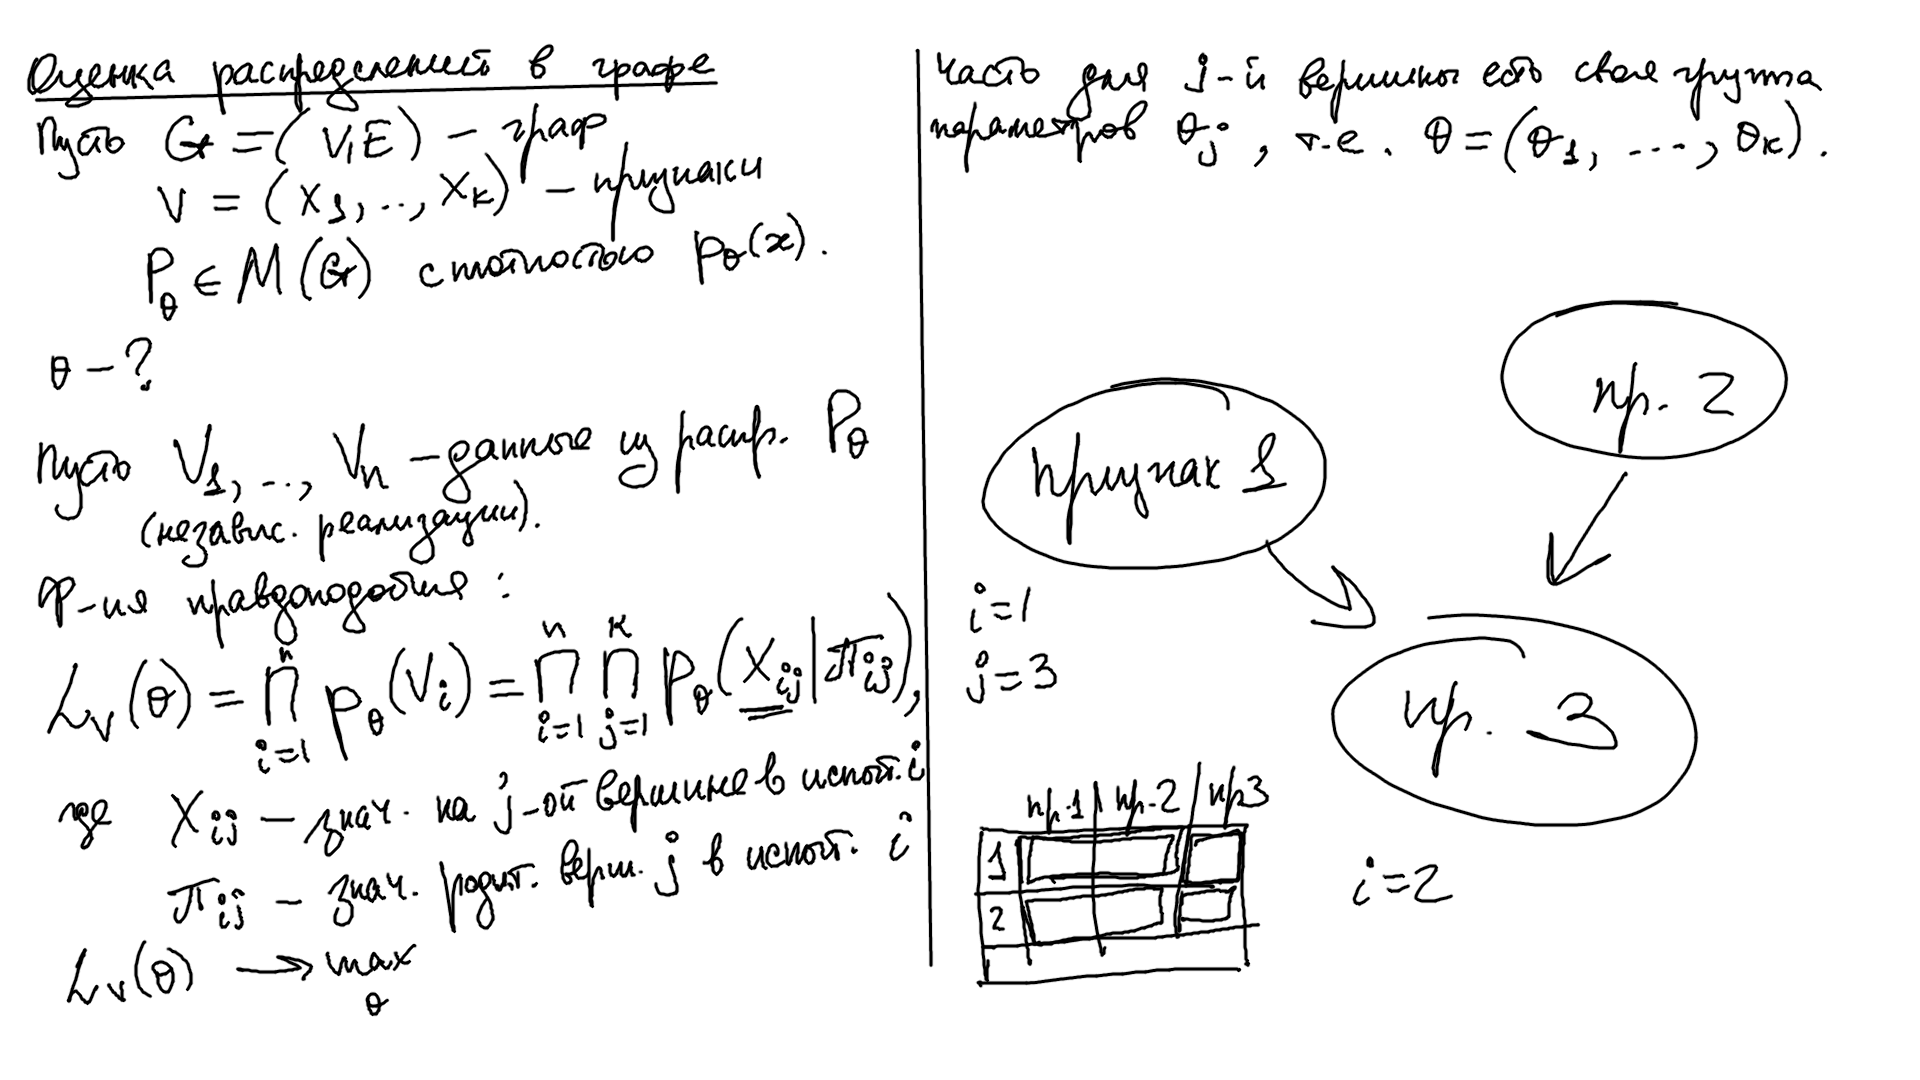 Оценка распределений в графе
Пусть G = (V, E) – граф
V = (X₁, .., Xₖ) – признаки
P_θ ∈ M(G) с плотностью p_θ(x).
θ – ?
Пусть V₁, ..., Vₙ – данные из распр. P_θ
(независ. реализации).
Ф-ия правдоподобия:
L_V(θ) = ∏_{i=1}^{n} p_θ(V_i) = ∏_{i=1}^{n} ∏_{j=1}^{k} p_θ(X_{ij} | π_{ij}),
где X_{ij} – знач. на j-ой вершине в испыт. i
π_{ij} – знач. родит. верш. j в испыт. i
L_V(θ) → max_θ
Часто для j-й вершины есть своя группа
параметров θ_j, т.е. θ = (θ₁, ..., θₖ).
пр. 2
признак 1
i=1
j=3
пр. 3
пр.1 пр.2 пр3
1
2
i=2